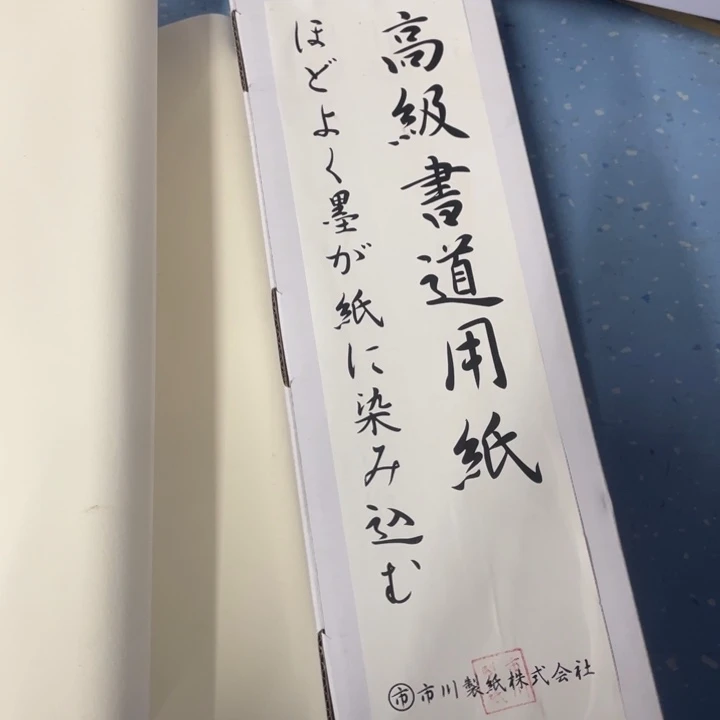 高級書道用紙
ほどよく墨が紙に染み込む
㊞市川製紙株式会社